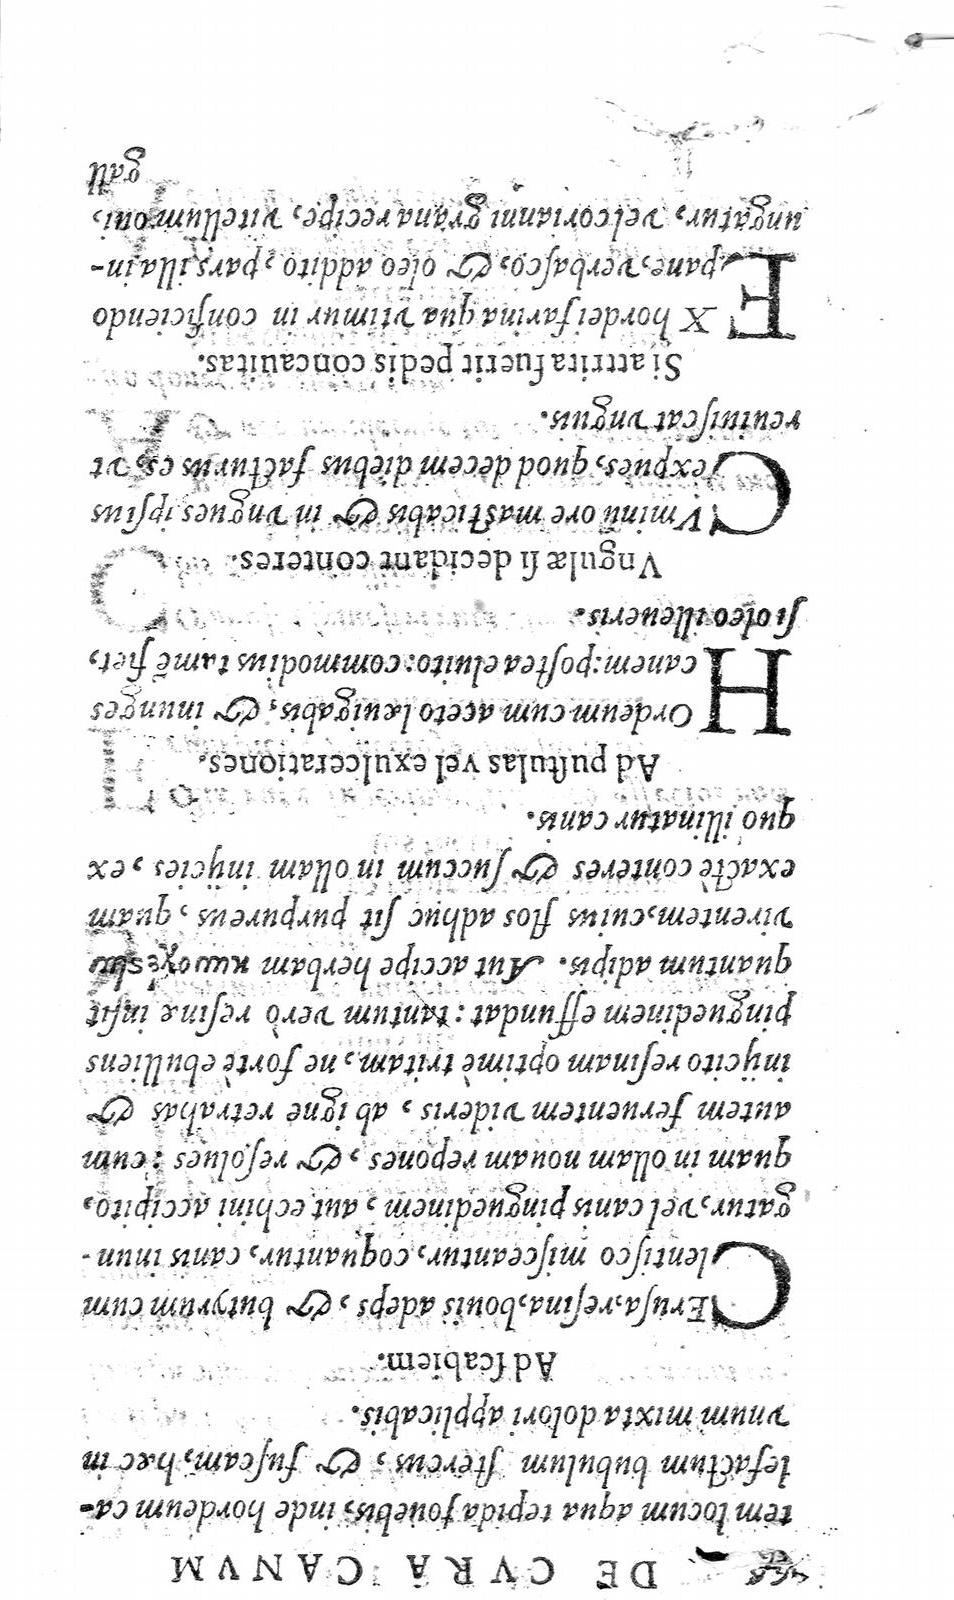 DE CVRA CANVM
tem locum aqua tepida fouebis, inde hordeum ca-
lefactum bubulum stercus, & fuscam, hæc in
vnum mixta dolori applicabis.
Ad scabiem.
CErusa, resina, bouis adeps, & butyrum cum
lentisco misceantur, coquantur, canis inun-
gatur, vel canis pinguedinem, aut echini accipito,
quam in ollam nouam repones, & resolues: cum
autem feruentem videris, ab igne retrahas &
inijcito resinam optimè tritam, ne fortè ebulliens
pinguedinem effundat: tantum verò resinæ insit
quantum adipis. Aut accipe herbam
virentem, cuius flos adhuc sit purpureus, quam
exactè conteres & succum in ollam inijcies, ex
quo illinatur canis.
Ad pustulas vel exulcerationes.
HOrdeum cum aceto læuigabis, & inunges
canem: postea eluito: commodius tamẽ fiet,
si oleo illeueris.
Vngulæ si decidant conteres.
CVminũ ore masticabis & in vngues ipsius
expues, quod decem diebus facturus es, vt
reuiuiscat vnguis.
Si attrita fuerit pedis concauitas.
EX hordei farina qua vtimur in conficiendo
pane, verbasco, & oleo addito, pars illa in-
ungatur, vel corianni grana recipe, vitellum oui,
gall